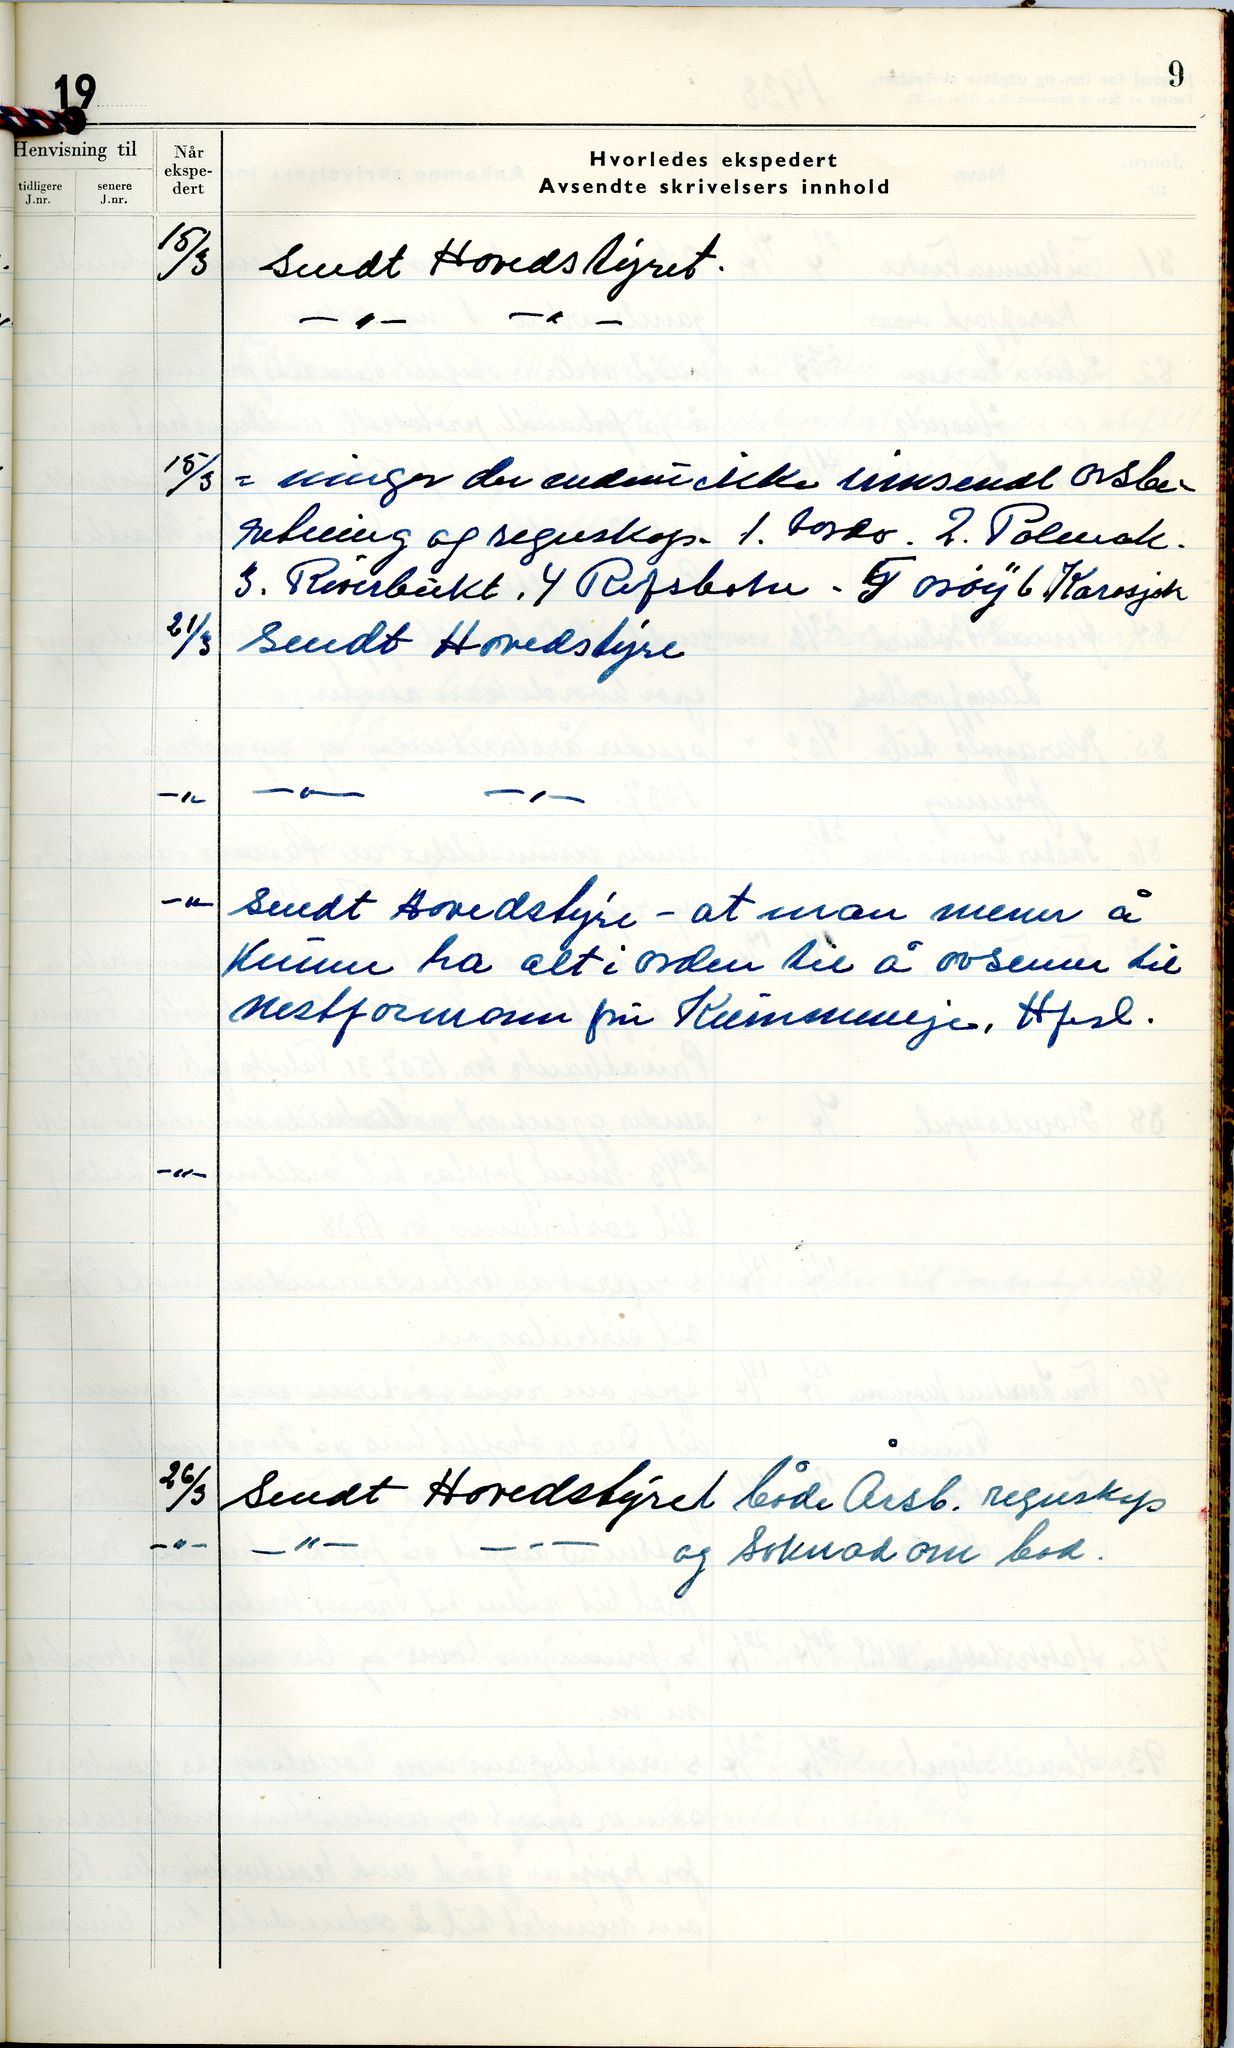 19
9
Henvisning til
tidligere J.nr.
senere J.nr.
Når ekspedert
Hvorledes ekspedert
Avsendte skrivelsers innhold
15/3 Sendt Hovedstyret.
— " — — " —
15/3 = ninger der endnu ikke innsendt årsbe-
retning og regnskap. 1. Vardø. 2. Polmak.
3. Riverbukt. 4 Refsbotn - 5 Sørøy 6 Karasjok
21/3 Sendt Hovedstyre
— " — — " — — " —
— " — Sendt Hovedstyre - at man mener å
kunne ha alt i orden til å avsende til
nestformann fru Kummeneje, Hfest.
— " —
26/3 Sendt Hovedstyret både Årsb. regnskap
— " — — " — — " — og søknad om bad.